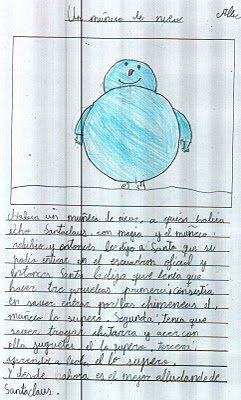 Un muñeco de nieve
Habia un muñeco de nieve, a quien habia
echo Santaclaus con magia y el muñeco
y entonces le dijo a Santa que si
podia entrar en el escuadron oficial y
entonces Santa le dijo que tenia que
hacer tres pruebas primera: consistia
en saver entrar por las chimeneas el
muñeco lo supero. Segunda: tenia que
saver tragar chatarra y acer con
ella juguetes el lo supero, tercera:
aprender a todo el lo supero.
Y desde ahora es el mejor alludande de
Santaclaus.